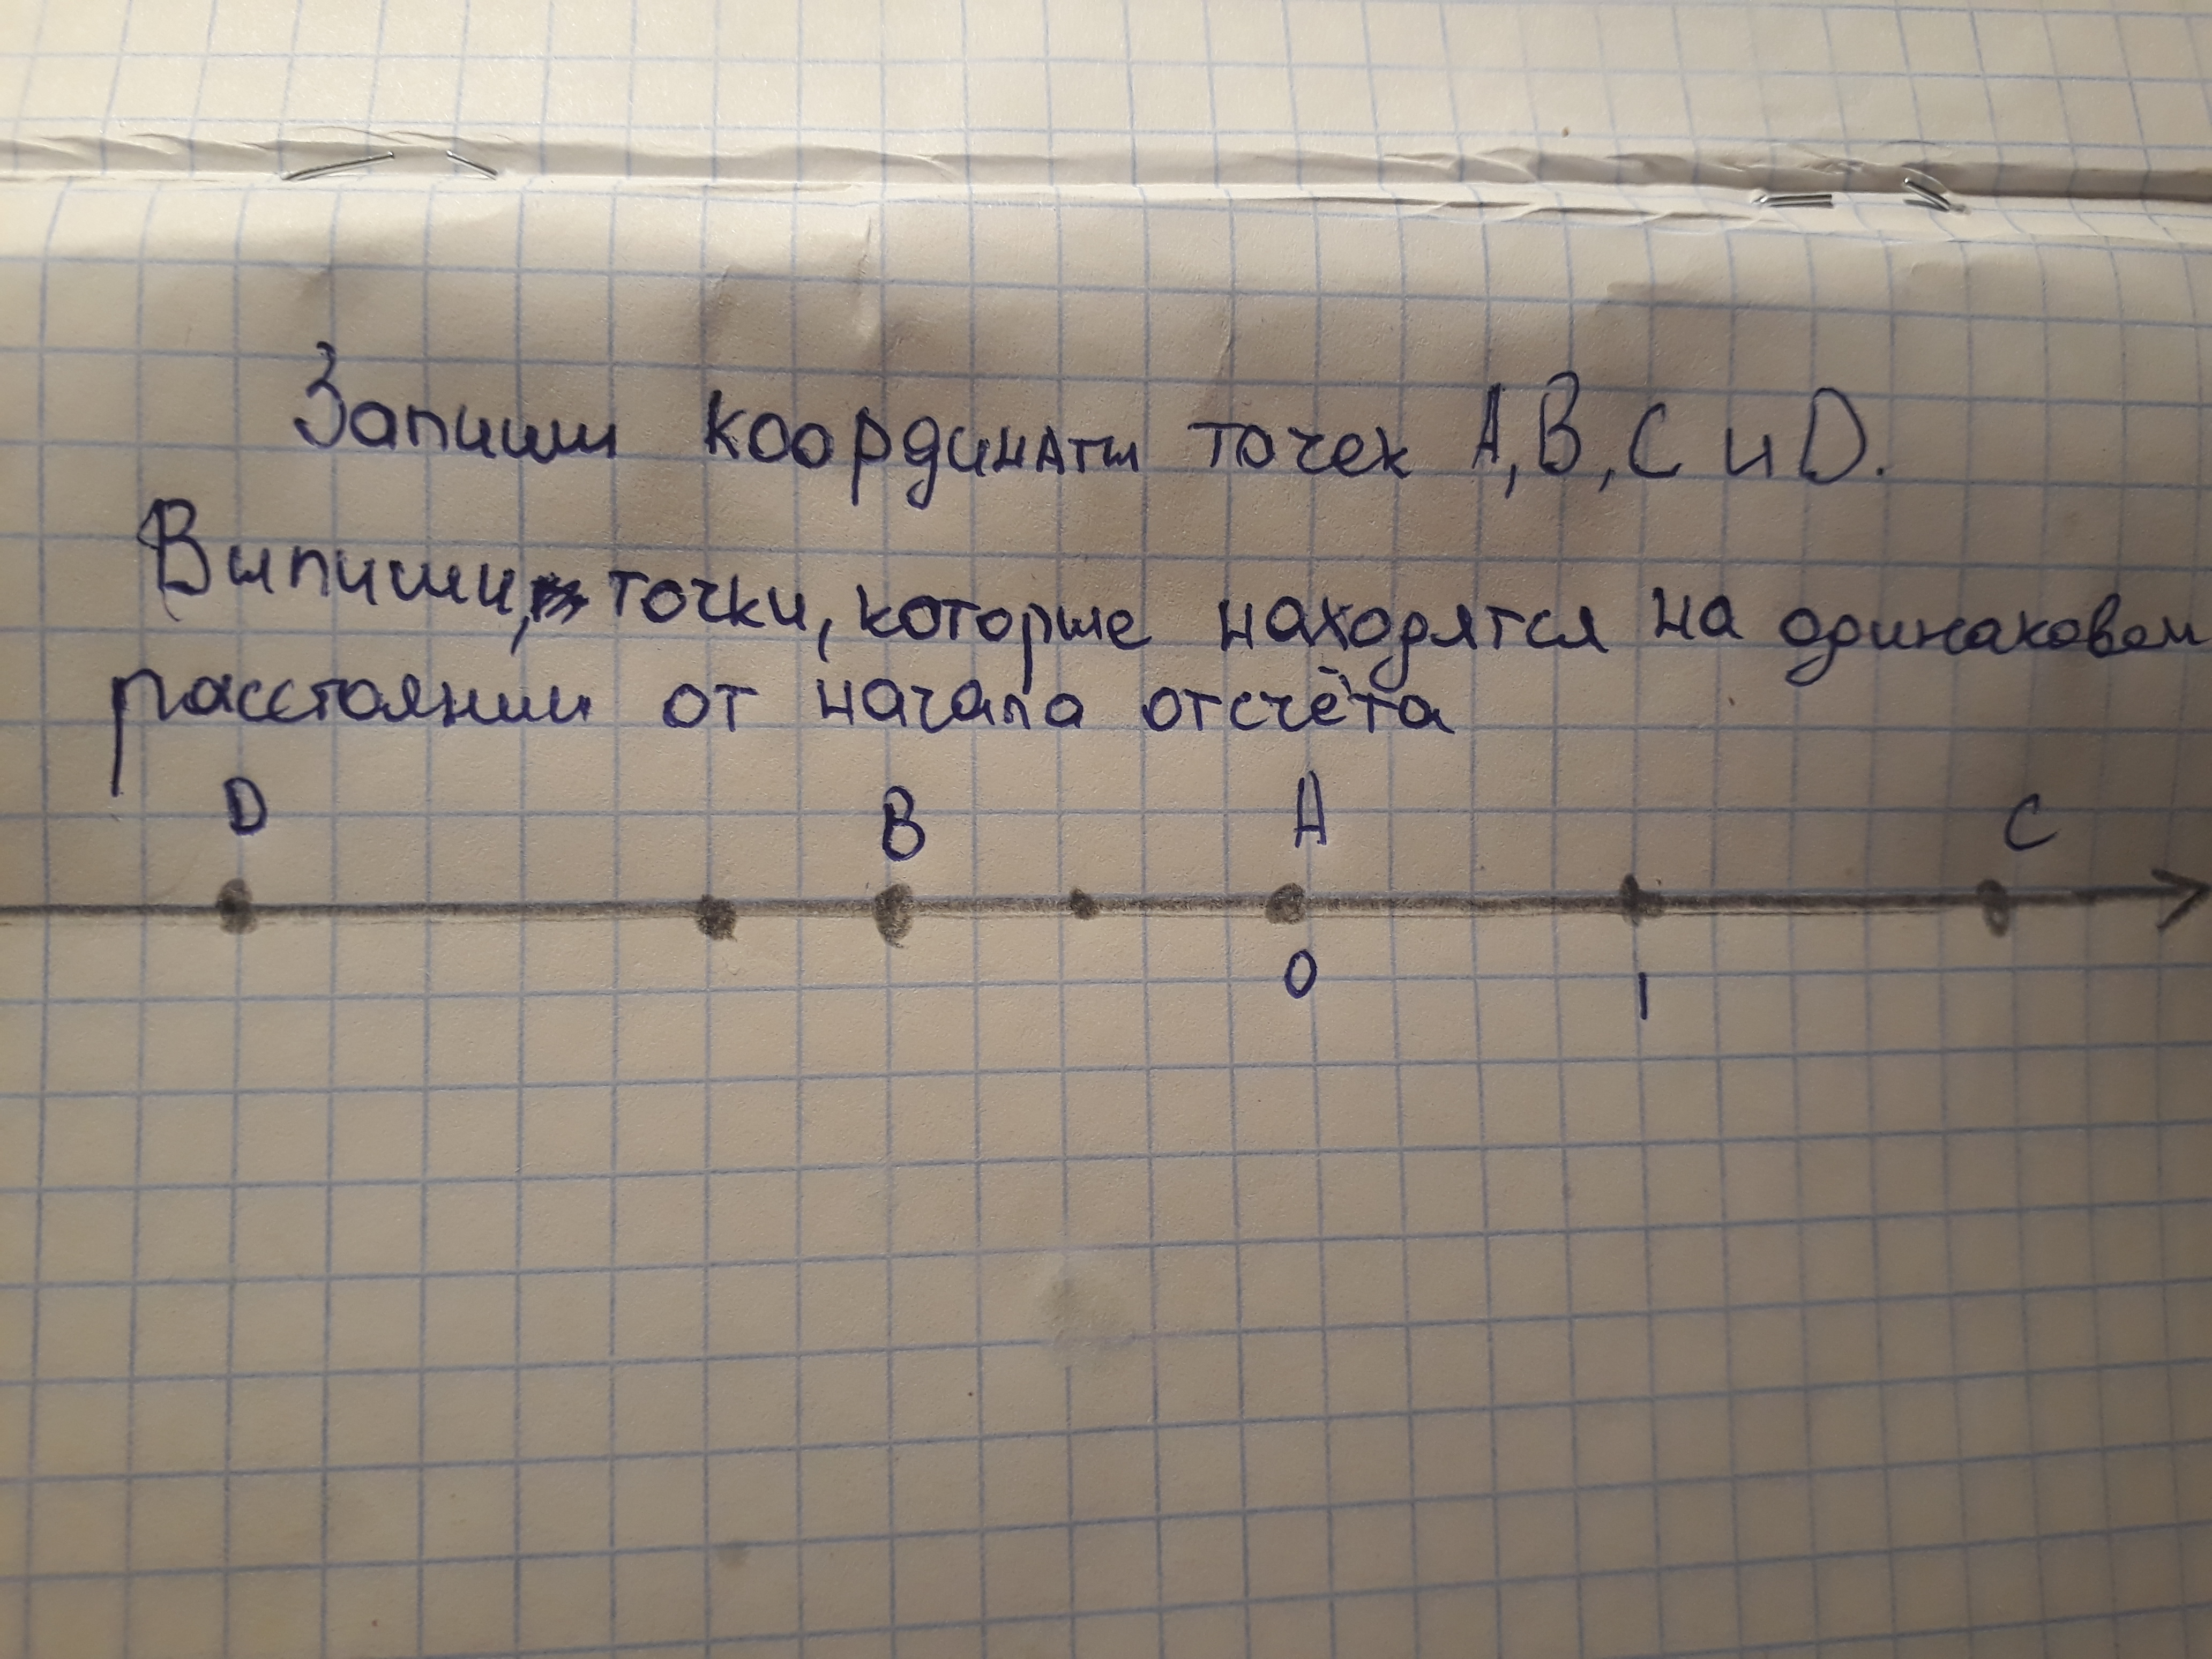 Запиши координаты точек A, B, C и D.
Выпиши, точки, которые находятся на одинаковом
расстоянии от начала отсчёта
D B A C
0 1